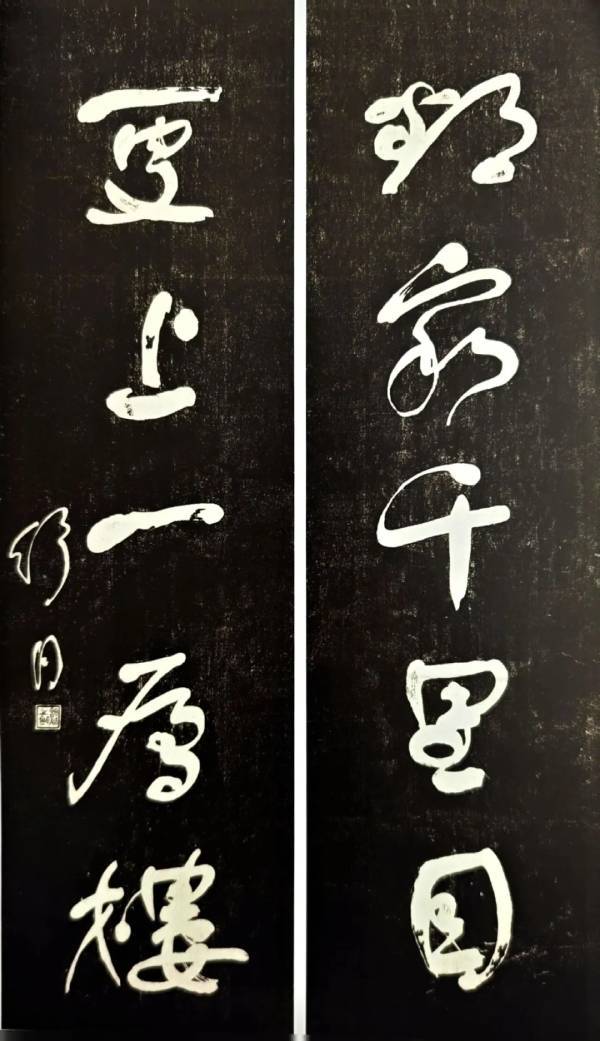 欲窮千里目
更上一層樓
舒同